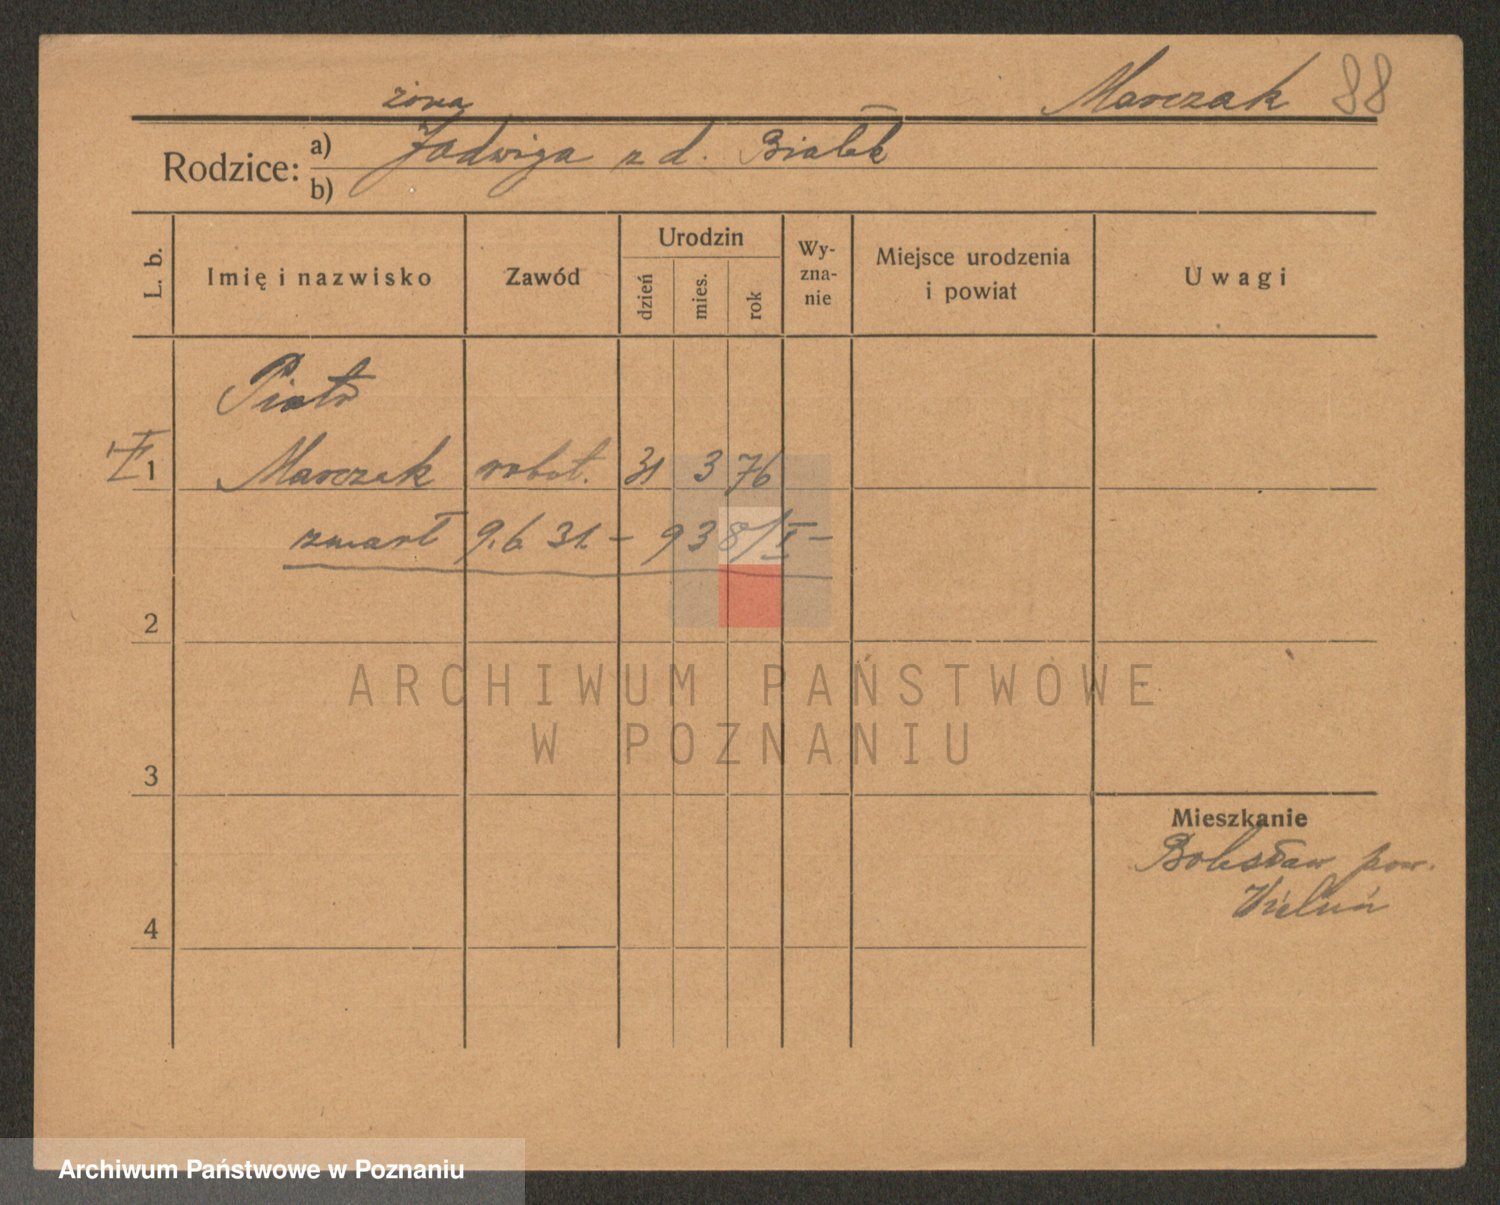 Marczak 88
żona
Rodzice: a) Jadwiga z d. Białek
b)
L. b.
Imię i nazwisko
Zawód
Urodzin
dzień
mies.
rok
Wy-
zna-
nie
Miejsce urodzenia
i powiat
Uwagi
Piotr
1 Marczak robot. 31 3 76
zmarł 9.6.31.- 938/I-
2
ARCHIWUM PAŃSTWOWE
W POZNANIU
3
Mieszkanie
Bolesław pow.
Wieluń
4
Archiwum Państwowe w Poznaniu